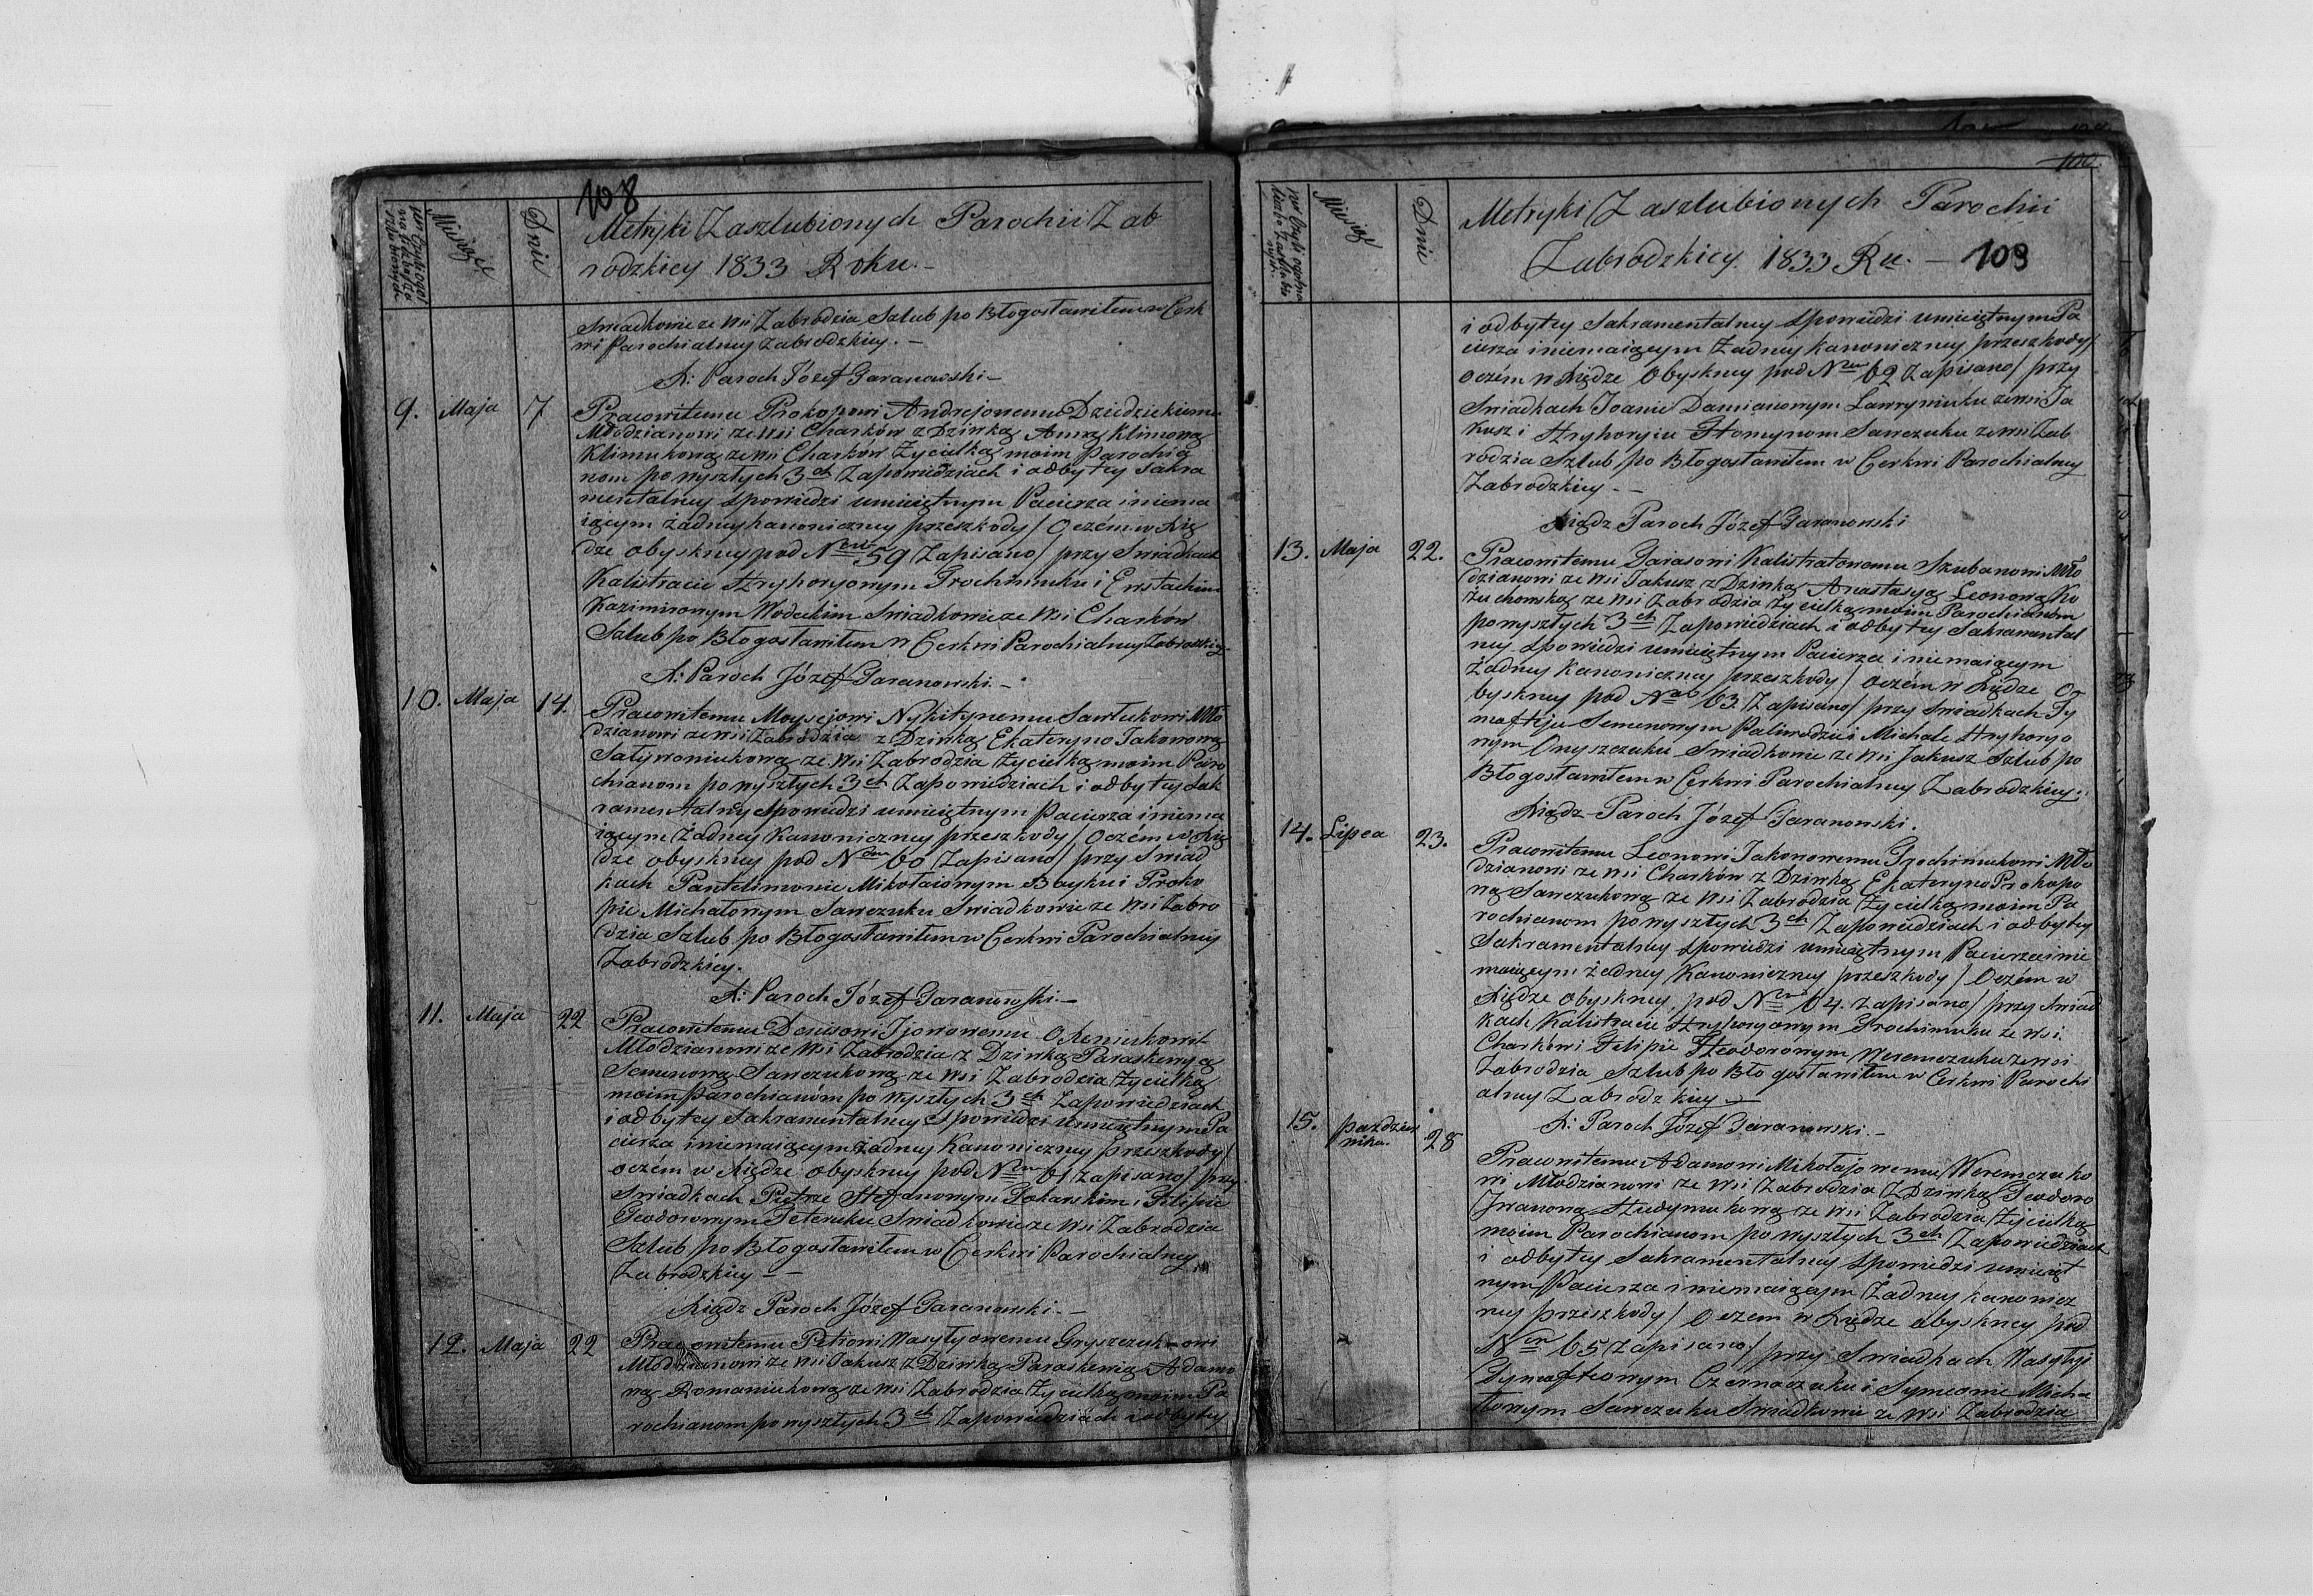 108
Metryki Zaszlubionych Parochii Zab
rodzkiey 1833 Roku. –
Miesiąc
Dnie
Swiadkowie ze Wsi Zabrodzia Szlub po Błogosławiłem w Cerk
wi Parochialney Zabrodzkiey. –
X: Paroch Józef Taranowski –
9. Maja 7 Pracowitemu Prokopowi Andrejowemu Dziedzickiemu
Młodzianowi ze Wsi Charków z Dziwką Anną Klimową
Klimukową ze Wsi Charków Życielką moim Parochia
nom po wyszłych 3ch Zapowiedziach i odbytey Sakra
mentalney Spowiedzi umieiętnym Pacierza i niema
iącym żadney kanoniczney przeszkody / O czém w Xię
dze obyskney pod Nem 59 Zapisano / przy Swiadkach
Kalistracie Hryhoryowym Prochimuku i Ewstachim
Kazimirowym Wodeckim Swiadkowie ze Wsi Charków
Szlub po Błogosławiłem w Cerkwi Parochialney Zabrodzkiey.
X: Paroch Józef Taranowski. –
10. Maja 14. Pracowitemu Moysejowi Nykitynemu Sawlukowi Mło
dzianowi ze wsi Zabrodzia z Dziwką Ekateryno Jakowową
Satywoniukową ze Wsi Zabrodzia Życielką moim Paro
chianom po wyszłych 3ch Zapowiedziach i odbytey Sak
ramentalney Spowiedzi umieiętnym Pacierza i niema
iącym Żadney Kanoniczney przeszkody / O czém w Xię
dze obyskney pod Nem 60 Zapisano / przy Swiad
kach Pantelimonie Mikołaiowym Bayku i Proko
pie Michałowym Sawczuku Swiadkowie ze Wsi Zabro
dzia Szlub po Błogosławiłem w Cerkwi Parochialney
Zabrodzkiey.
X: Paroch Józef Taranowski. –
11. Maja 22 Pracowitemu Denisowi
Młodzianowi ze Wsi Zabrodzia z Dziwką Paraskewyą
Semenową Sawczukową ze Wsi Zabrodzia Życielką
moim Parochianóm po wyszłych 3ch Zapowiedziach
i odbytey Sakramentalney Spowiedzi umieiętnym Pa
cierza i niemaiącym żadney Kanoniczney przeszkody /
o czém w Xiędze obyskney pod Nem 61 Zapisano / przy
Swiadkach Piętrze Stefanowym Tokarskim i Filipie
Teodorowym Peteruku Swiadkowie ze Wsi Zabrodzia
Szlub po Błogosławiłem w Cerkwi Parochialney
Zabrodzkiey – –
Xiądz Paroch Józef Taranowski. –
12. Maja 22 Pracowitemu Petrowi Wasylyowemu Gryszczuk-owi
Młodzianowi ze Wsi Jakusz z Dziwką Paraskewią Adamo
wą Romaniukową ze Wsi Zabrodzia Życielką moim Pa
rochianom po wyszłych 3ch Zapowiedziach i odbytey
100.
Metryki Zaszlubionych Parochii
Zabrodzkiey. 1833 Ru. – 109
Miesiąc
Dnie
i odbytey Sakramentalney Spowiedzi umieiętnym Pa
cierza i niemaiącym Żadney Kanoniczney przeszkody /
O czém w Xiędze Obyskney pod Nem 62 Zapisano / przy
Swiadkach Joanie Damianowym Lawryniuku ze wsi Ja
kusz i Hryhoryiu Homynom Sawczuku ze wsi Zab
rodzia Szlub po Błogosławiłem w Cerkwi Parochialney
Zabrodzkiey. –
Xiądz Paroch Józef Taranowski
13. Maja 22. Pracowitemu Tarasowi Kalistratowemu Szubanowi Mło
dzianowi ze Wsi Jakusz z Dziwką Anastasyą Leonową Ko
żuchowską ze Wsi Zabrodzia Życielką moim Parochianóm
po wyszłych 3ch Zapowiedziach i odbytey Sakramental
ney Spowiedzi umieiętnym Pacierza i niemaiącym
Żadney Kanoniczney przeszkody / O czém w Xiędze O
byskney pod Nem 63. Zapisano / przy Swiadkach Ty
moftiju Semenowym Paliwodzie i Michale Hryhoryo
wym Onyszczuku Swiadkowie ze Wsi Jakusz Szlub po
Błogosławiłem w Cerkwi Parochialney Zabrodzkiey.
Xiądz Paroch Józef Taranowski.
14. Lipca 23. Pracowitemu Leonowi Jakonowemu Prochimukowi Mło
dzianowi ze Wsi Charków z Dziwką Ekateryno Prokopo
wą Sawczukową ze Wsi Zabrodzia Życielką moim Pa
rochianom po wyszłych 3ch Zapowiedziach i odbytey
Sakramentalney Spowiedzi umieiętnym Pacierza i nie
maiącym Żadney Kanoniczney przeszkody / O czém w
Xiędze obyskney pod Nem 64. Zapisano / przy Swiad
kach Kalistracie Hryhoryowym Prochimuku ze wsi
Charków i Filipie Teodorowym Weremczuku ze wsi
Zabrodzia Szlub po Błogosławiłem w Cerkwi Parochi
alney Zabrodzkiey –
X: Paroch Józef Taranowski. –
15. paździer
nika. 28 Pracowitemu Adamowi Mikołajowemu Weremczuko
wi Młodzianowi ze Wsi Zabrodzia z Dziwką Teodoro
Jwanową Hudymukową ze Wsi Zabrodzia Życielką
moim Parochianom po wyszłych 3ch Zapowiedziach
i odbytey Sakramentalney Spowiedzi umieięt
nym Pacierza i niemaiącym Żadney kanonicz
ney przeszkody / O czem w Xiędze obyskney pod
Nem 65 Zapisano / przy Swiadkach Wasylyi
Tymoftiowym Czernaczuku i Symeonie Micha
łowym Sawczuku Swiadkowie ze Wsi Zabrodzia